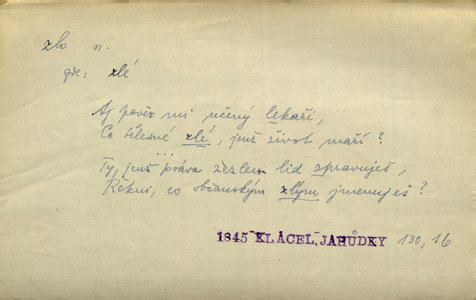 zlo n.
gře: zlé
Aj pověz mi učený lekaři,
Co tělesné zlé, jenž život maří?
...
Ty, jenž práva žezlem lid spravuješ,
Řekni, co občanským zlým jmenuješ?
1845 KLÁCEL, JAHŮDKY 130,16